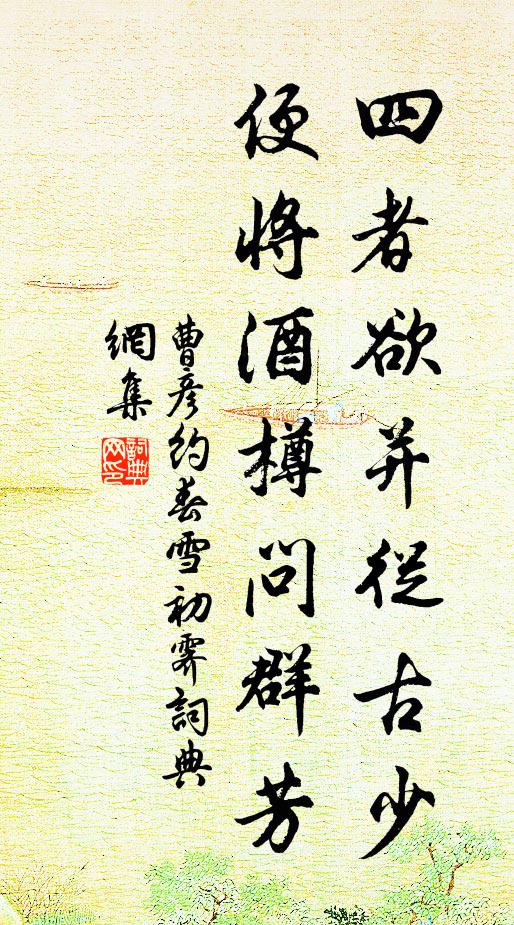 四者欲并從古少
便將酒樽問群芳
曹彥約春雪初霽詞典
網集
詞典网印